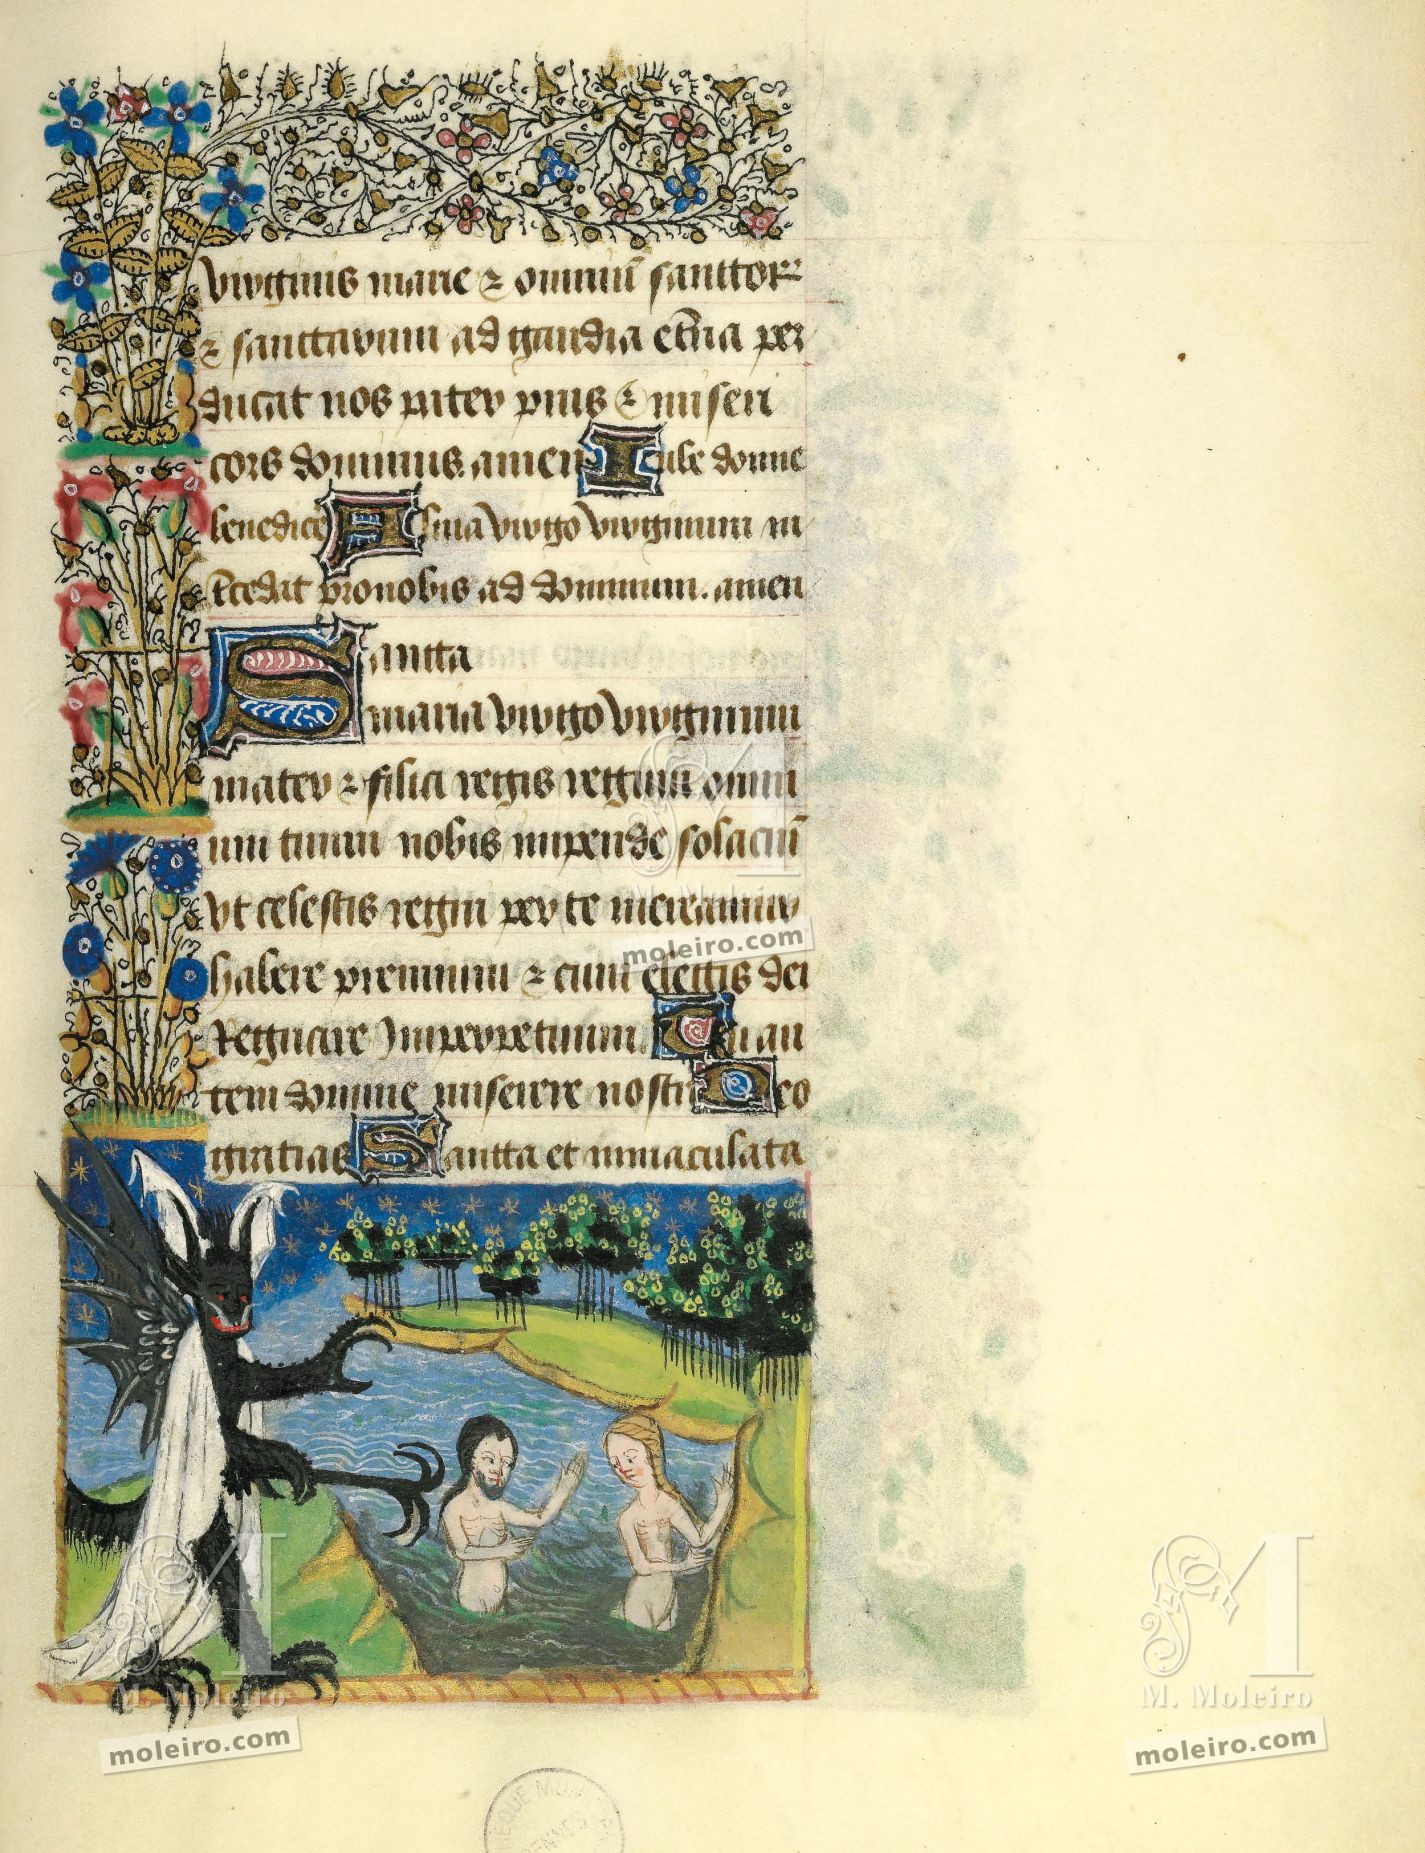 virginis marie ⁊ omniu͂ sanctor
⁊ sanctarum ad gaudia et͂na per
ducat nos pater pius ⁊ miseri
cors dominus. amen Iube domne
benedice Alma virgo virginum in
t͂cedat pro nobis ad dominum. amen
Sancta
maria virgo virginum
mater ⁊ filia regis regum omni
um tuum nobis impende solaciu͂
vt celestis regni per te mereamur
habere premium ⁊ cum electis dei
Regnare Imperpetuum. Tu au
tem domine miserere nostri Deo
gratias Sancta et inmaculata
M. Moleiro
moleiro.com
M. Moleiro
moleiro.com
M. Moleiro
moleiro.com